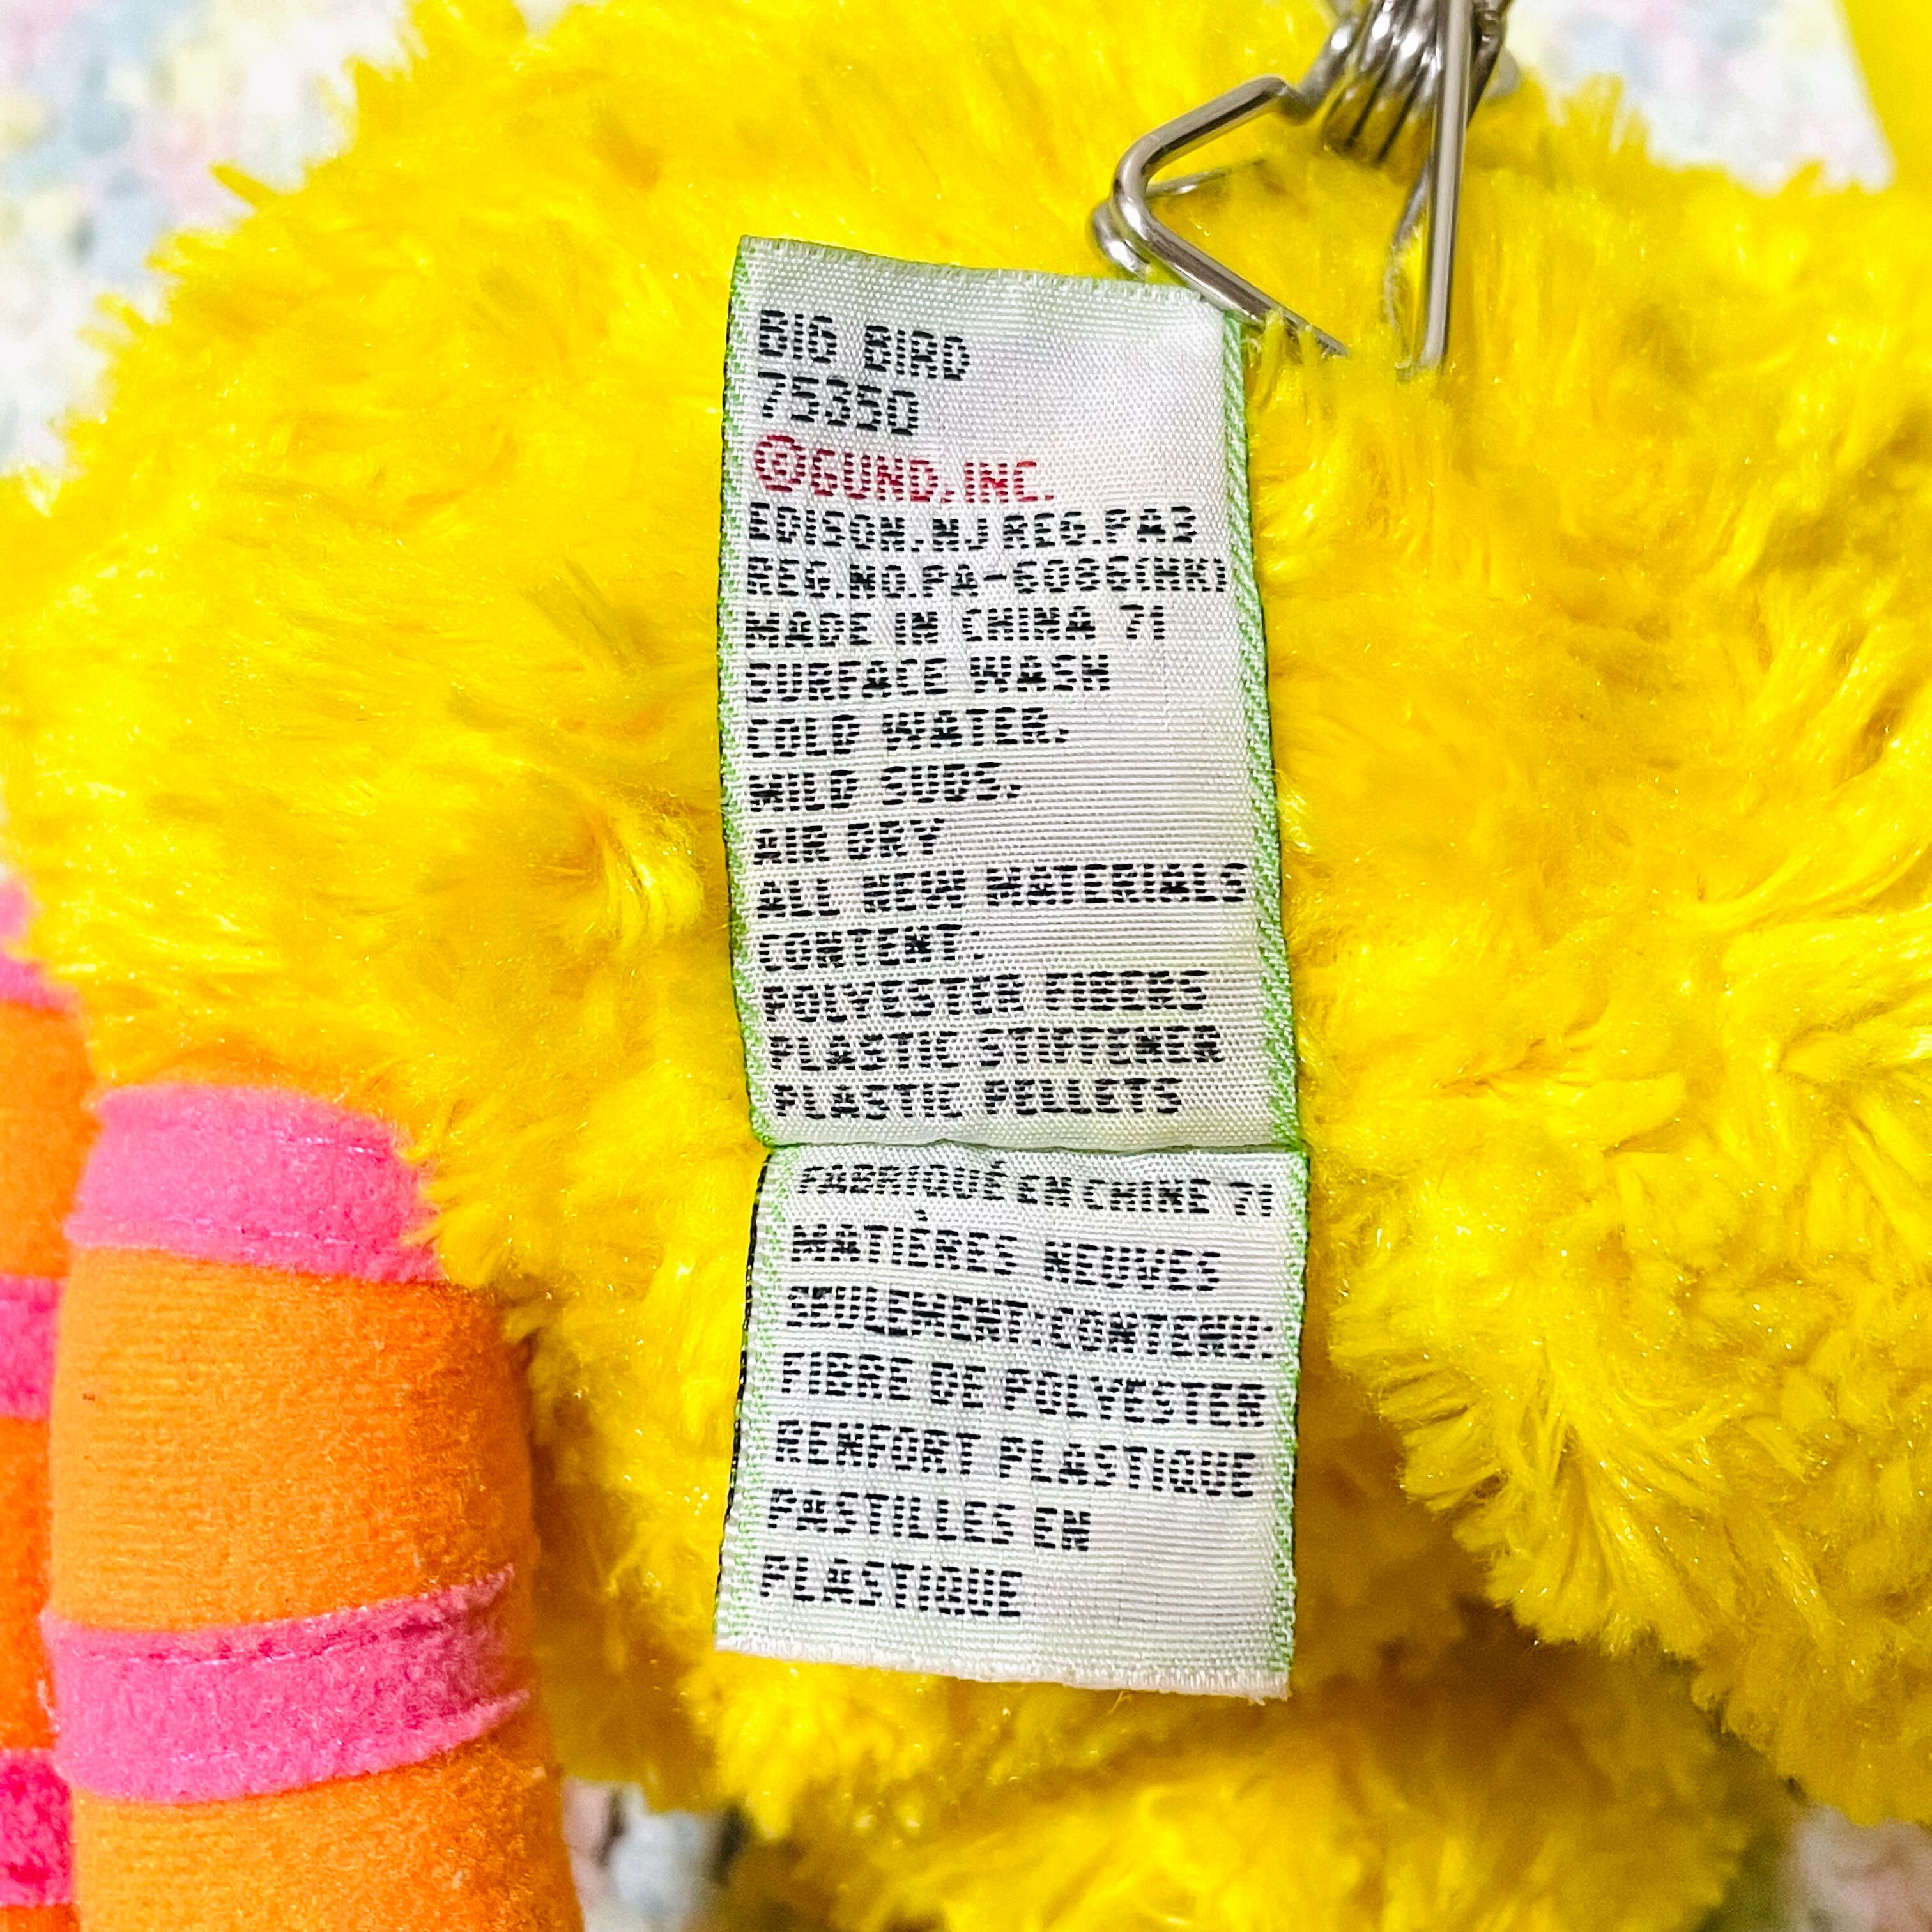 BIG BIRD
75350
©GUND, INC.
EDISON, NJ REG.PA3
REG.NO.PA-6086(HK)
MADE IN CHINA 71
SURFACE WASH
COLD WATER,
MILD SUDS,
AIR DRY
ALL NEW MATERIALS
CONTENT:
POLYESTER FIBERS
PLASTIC STIFFENER
PLASTIC PELLETS
FABRIQUÉ EN CHINE 71
MATIÈRES NEUVES
SEULEMENT:CONTENU:
FIBRE DE POLYESTER
RENFORT PLASTIQUE
PASTILLES EN
PLASTIQUE